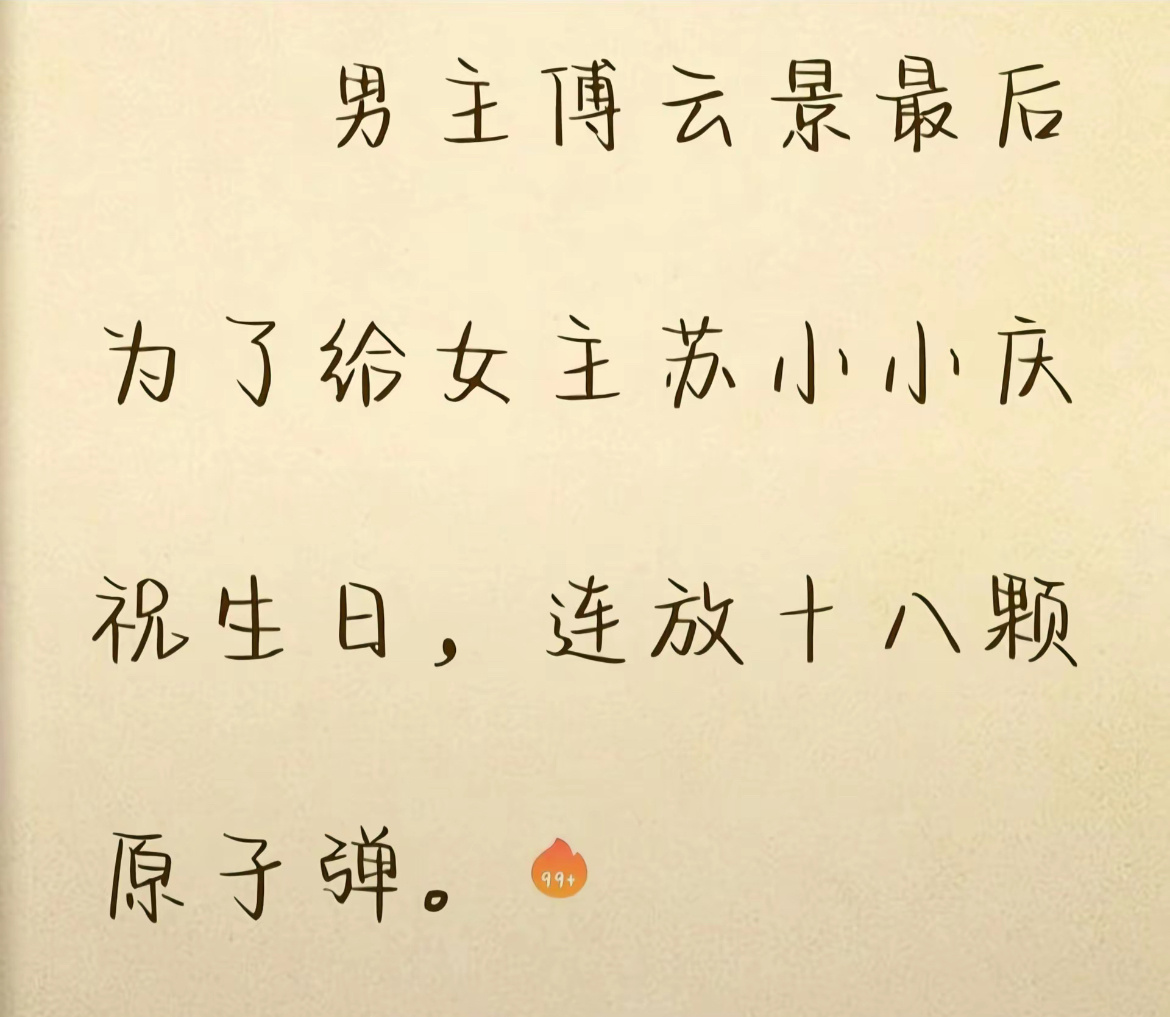 男主傅云景最后
为了给女主苏小小庆
祝生日，连放十八颗
原子弹。 99+